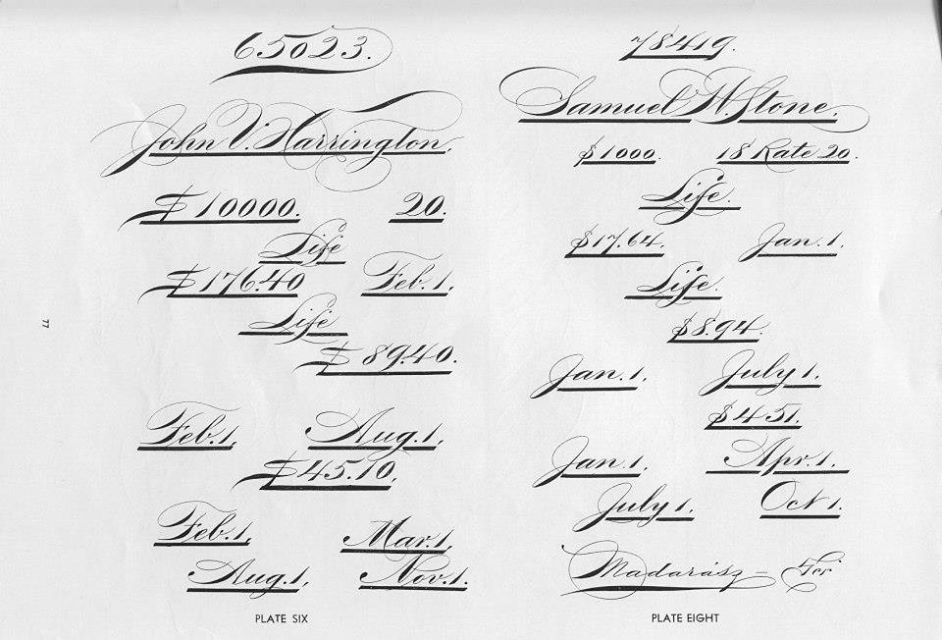 65023.
John V. Harrington.
$10000. 20.
Life
$176.40 Feb. 1.
Life
$89.40.
Feb. 1, Aug. 1,
$45.10,
Feb. 1, Mar. 1,
Aug. 1, Nov. 1.
PLATE SIX
78419.
Samuel H. Stone.
$1000. 18 Rate 20.
Life.
$17.64. Jan. 1.
Life.
$8.94.
Jan. 1. July 1.
$4.51.
Jan. 1. Apr. 1.
July 1. Oct 1.
Madarász –
PLATE EIGHT
77